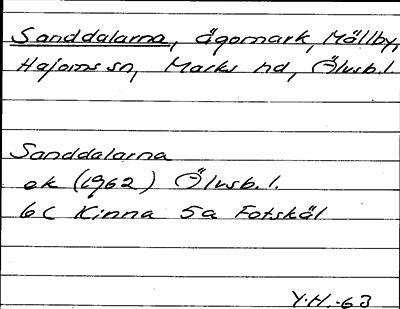 Sanddalarna, ägomark, Mällby,
Hajoms sn, Marks hd, Älvsb.l.
Sanddalarna
ek (1962) Älvsb.l.
6C Kinna 5a Fotskäl
Y.H.-63